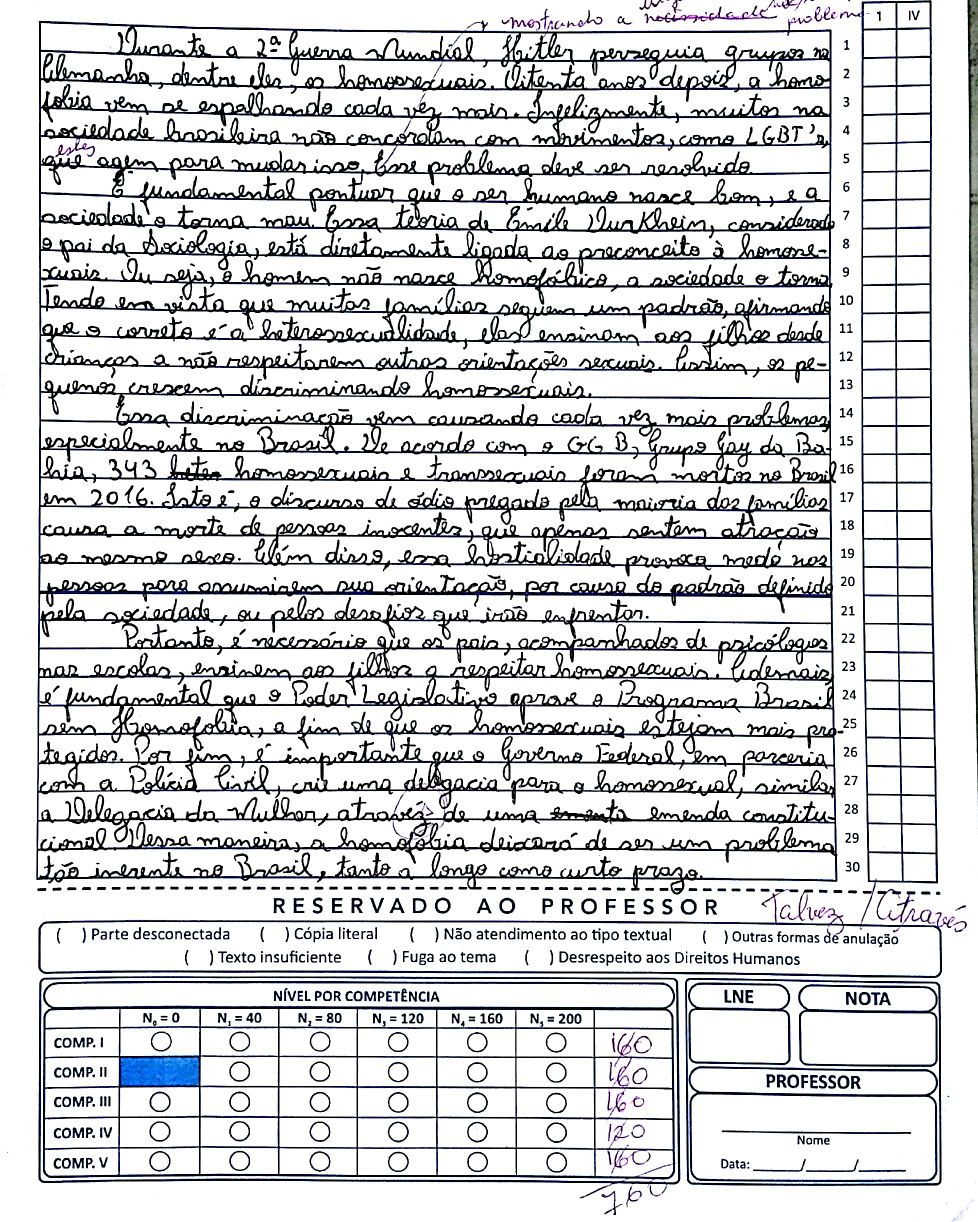 mostrando a necessidade problema
1 IV
Durante a 2ª Guerra Mundial, Hitler perseguia grupos na 1
Alemanha, dentre eles, os homossexuais. Oitenta anos depois, a homo 2
fobia vem se espalhando cada vez mais. Infelizmente, muitos na 3
sociedade brasileira não concordam com movimentos, como LGBT's, 4
estes
que agem para mudar isso, Esse problema deve ser resolvido. 5
É fundamental pontuar que o ser humano nasce bom, e a 6
sociedade o torna mau. Essa teoria de Émile Durkhein, considerado 7
o pai da Sociologia, está diretamente ligada ao preconceito à homose- 8
xuais. Ou seja, o homem não nasce homofóbico, a sociedade o torna 9
Tendo em vista que muitas famílias seguem um padrão, afirmando 10
que o correto é a heterossexualidade, elas ensinam aos filhos desde 11
crianças a não respeitarem outras orientações sexuais. Assim, os pe- 12
quenos crescem discriminando homossexuais. 13
Essa discriminação vem causando cada vez mais problemas, 14
especialmente no Brasil. De acordo com o GGB, Grupo Gay da Ba- 15
hia, 343 homossexuais e transsexuais foram mortos no Brasil 16
em 2016. Isto é, o discurso de ódio pregado pela maioria das famílias 17
causa a morte de pessoas inocentes, que apenas sentem atração 18
ao mesmo sexo. Além disso, essa hostialidade provoca medo nas 19
pessoas para assumirem sua orientação, por causa do padrão definido 20
pela sociedade, ou pelos desafios que irão enfrentar. 21
Portanto, é necessário que os pais, acompanhados de psicólogos 22
nas escolas, ensinem aos filhos a respeitar homossexuais. Ademais, 23
é fundamental que o Poder Legislativo aprove o Programa Brasil 24
sem Homofobia, a fim de que os homossexuais estejam mais pro- 25
tegidos. Por fim, é importante que o Governo Federal, em parceria 26
com a Polícia Civil, crie uma delegacia para o homossexual, similar 27
a Delegacia da Mulher, atravéz de uma ementa emenda constitu- 28
cional Dessa maneira, a homofobia deixará de ser um problema 29
tão inerente no Brasil, tanto à longo como curto prazo. 30
RESERVADO AO PROFESSOR Talvez / Através
( ) Parte desconectada ( ) Cópia literal ( ) Não atendimento ao tipo textual ( ) Outras formas de anulação
( ) Texto insuficiente ( ) Fuga ao tema ( ) Desrespeito aos Direitos Humanos
NÍVEL POR COMPETÊNCIA LNE NOTA
N₀ = 0 N₁ = 40 N₂ = 80 N₃ = 120 N₄ = 160 N₅ = 200
COMP. I 160
COMP. II 160
COMP. III 160
COMP. IV 120
COMP. V 160
760
PROFESSOR
Nome
Data: ____/____/____